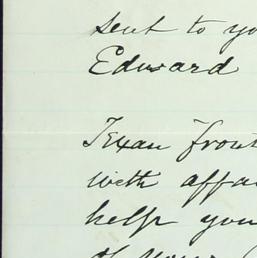 sent to yo
Edward
Texan front
with affai
help you
of your